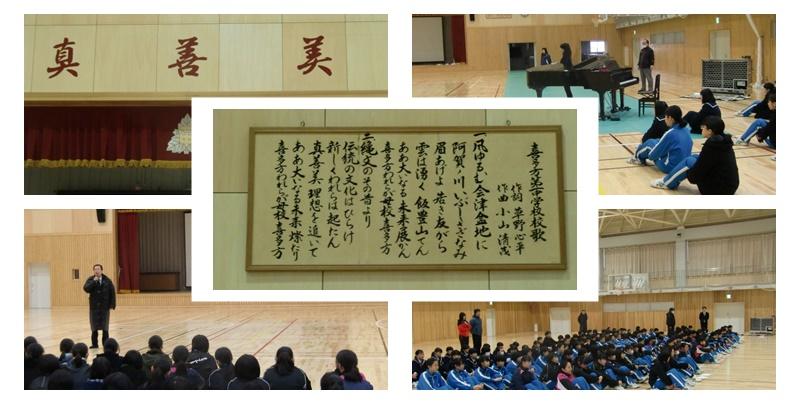 真 善 美
喜多方第一中学校校歌
作詞 草野心平
作曲 小山清茂
一、風ゆるし会津盆地に
阿賀ノ川いぶしぎんなみ
眉あげよ若き友がら
雲は湧く飯豊山てん
ああ大いなる未来展かん
喜多方われらが母校喜多方
二、縄文のその昔より
伝統の文化はひらけ
新しくわれらは起たん
真善美理想を追いて
ああ大いなる未来燦たり
喜多方われらが母校喜多方